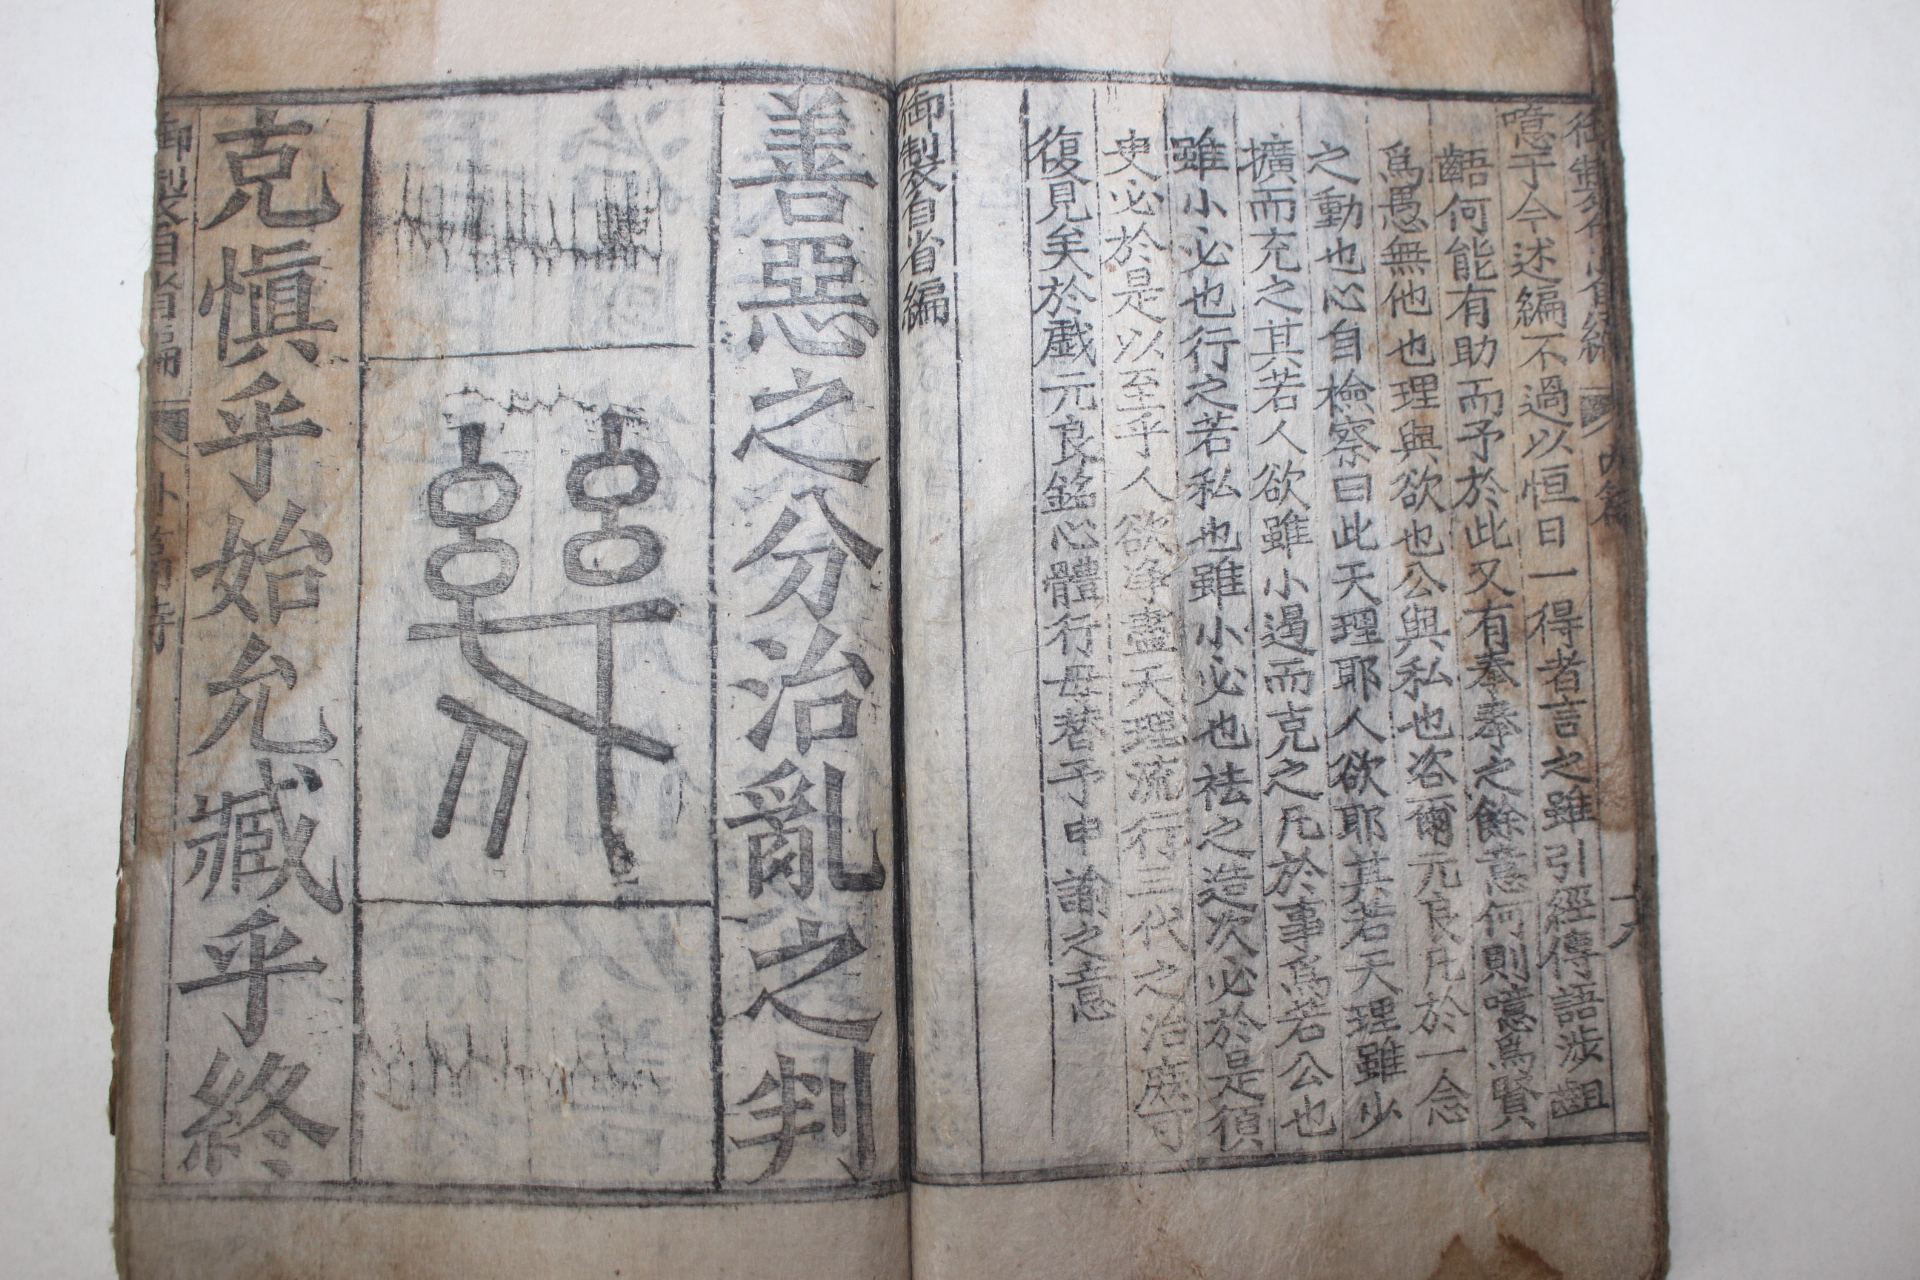 噫于今述編不過以恒日一得者言之雖引經傳語涉齟
齬何能有助而予於此又有奉奉之餘意何則噫爲賢
爲愚無他也理與欲也公與私也咨爾元良凡於一念
之動也心自檢察曰此天理耶人欲耶其若天理雖少
擴而充之其若人欲雖小遏而克之凡於事爲若公也
雖小必也行之若私也雖小必也祛之造次必於是須
史必於是以至乎人欲淨盡天理流行三代之治庶可
復見矣於戲元良銘心體行毋替予申諭之意
御製自省編
善惡之分治亂之判
克愼乎始允臧乎終
御製自省編